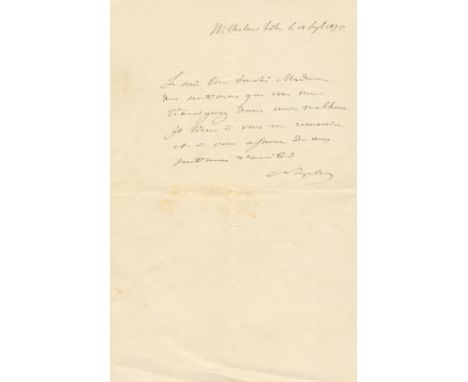 Wilhelmshöhe le 18 Sept 1870
Je suis bien touché Madame
des sentimens que vous me
témoignez dans mon malheur
je tiens à vous en remercier
et à vous assurer de mes
sentimens d'amitié
Napoléon